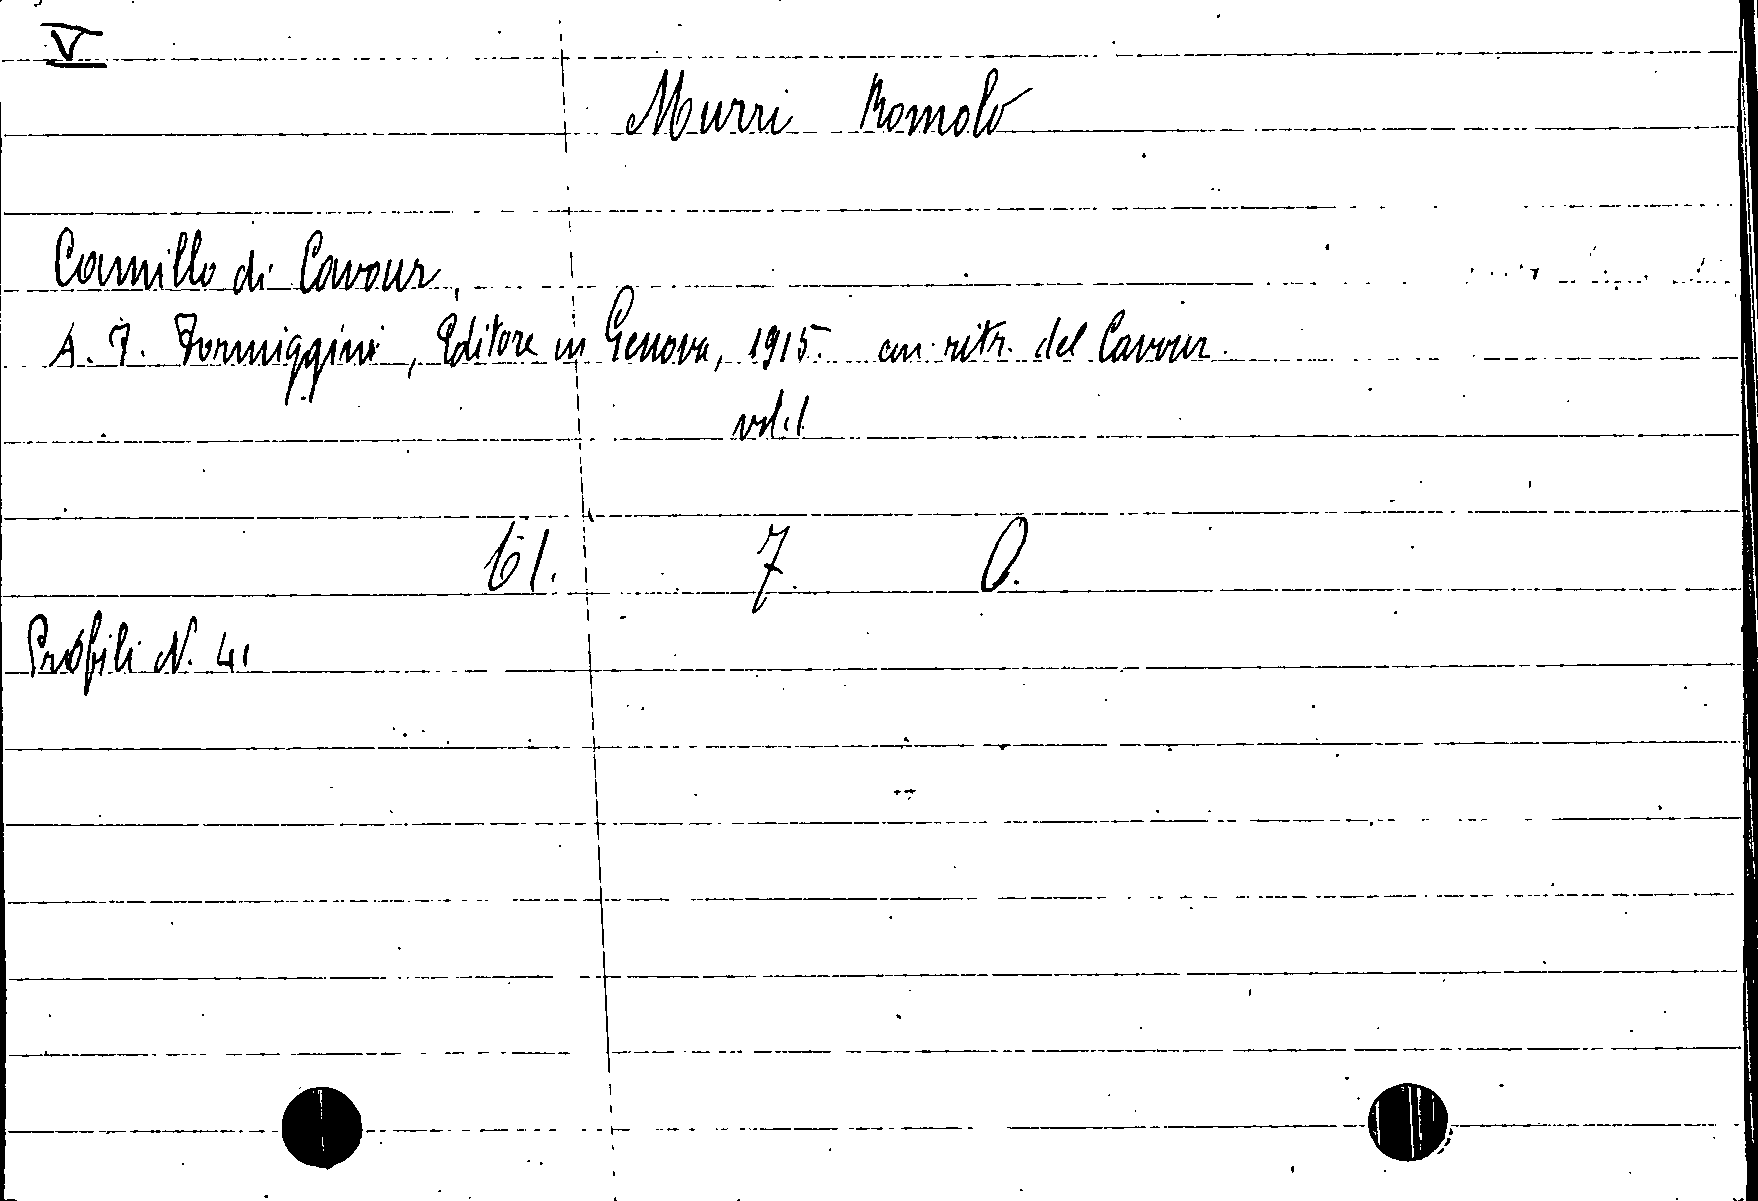 V
Murri Romolo
Camillo di Cavour,
A. F. Formiggini, Editore in Genova, 1915. con ritr. del Cavour.
vol. 1
61. 7. O.
Profili N. 41